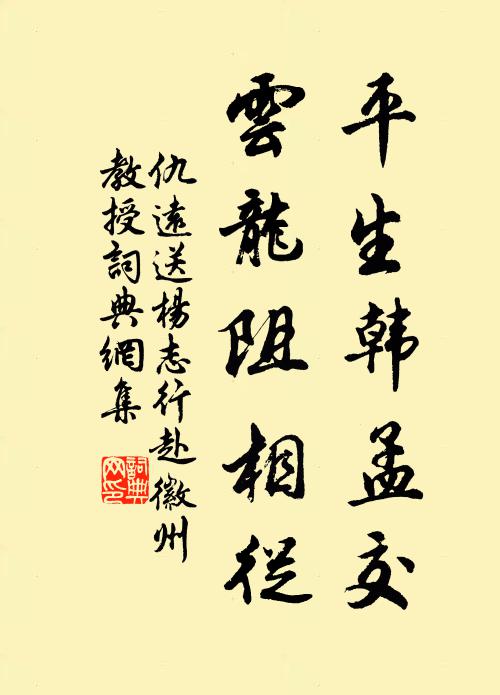 平生韩孟交
雲龍阻相從
仇遠送楊志行赴徽州
教授詞典網集
詞典網印